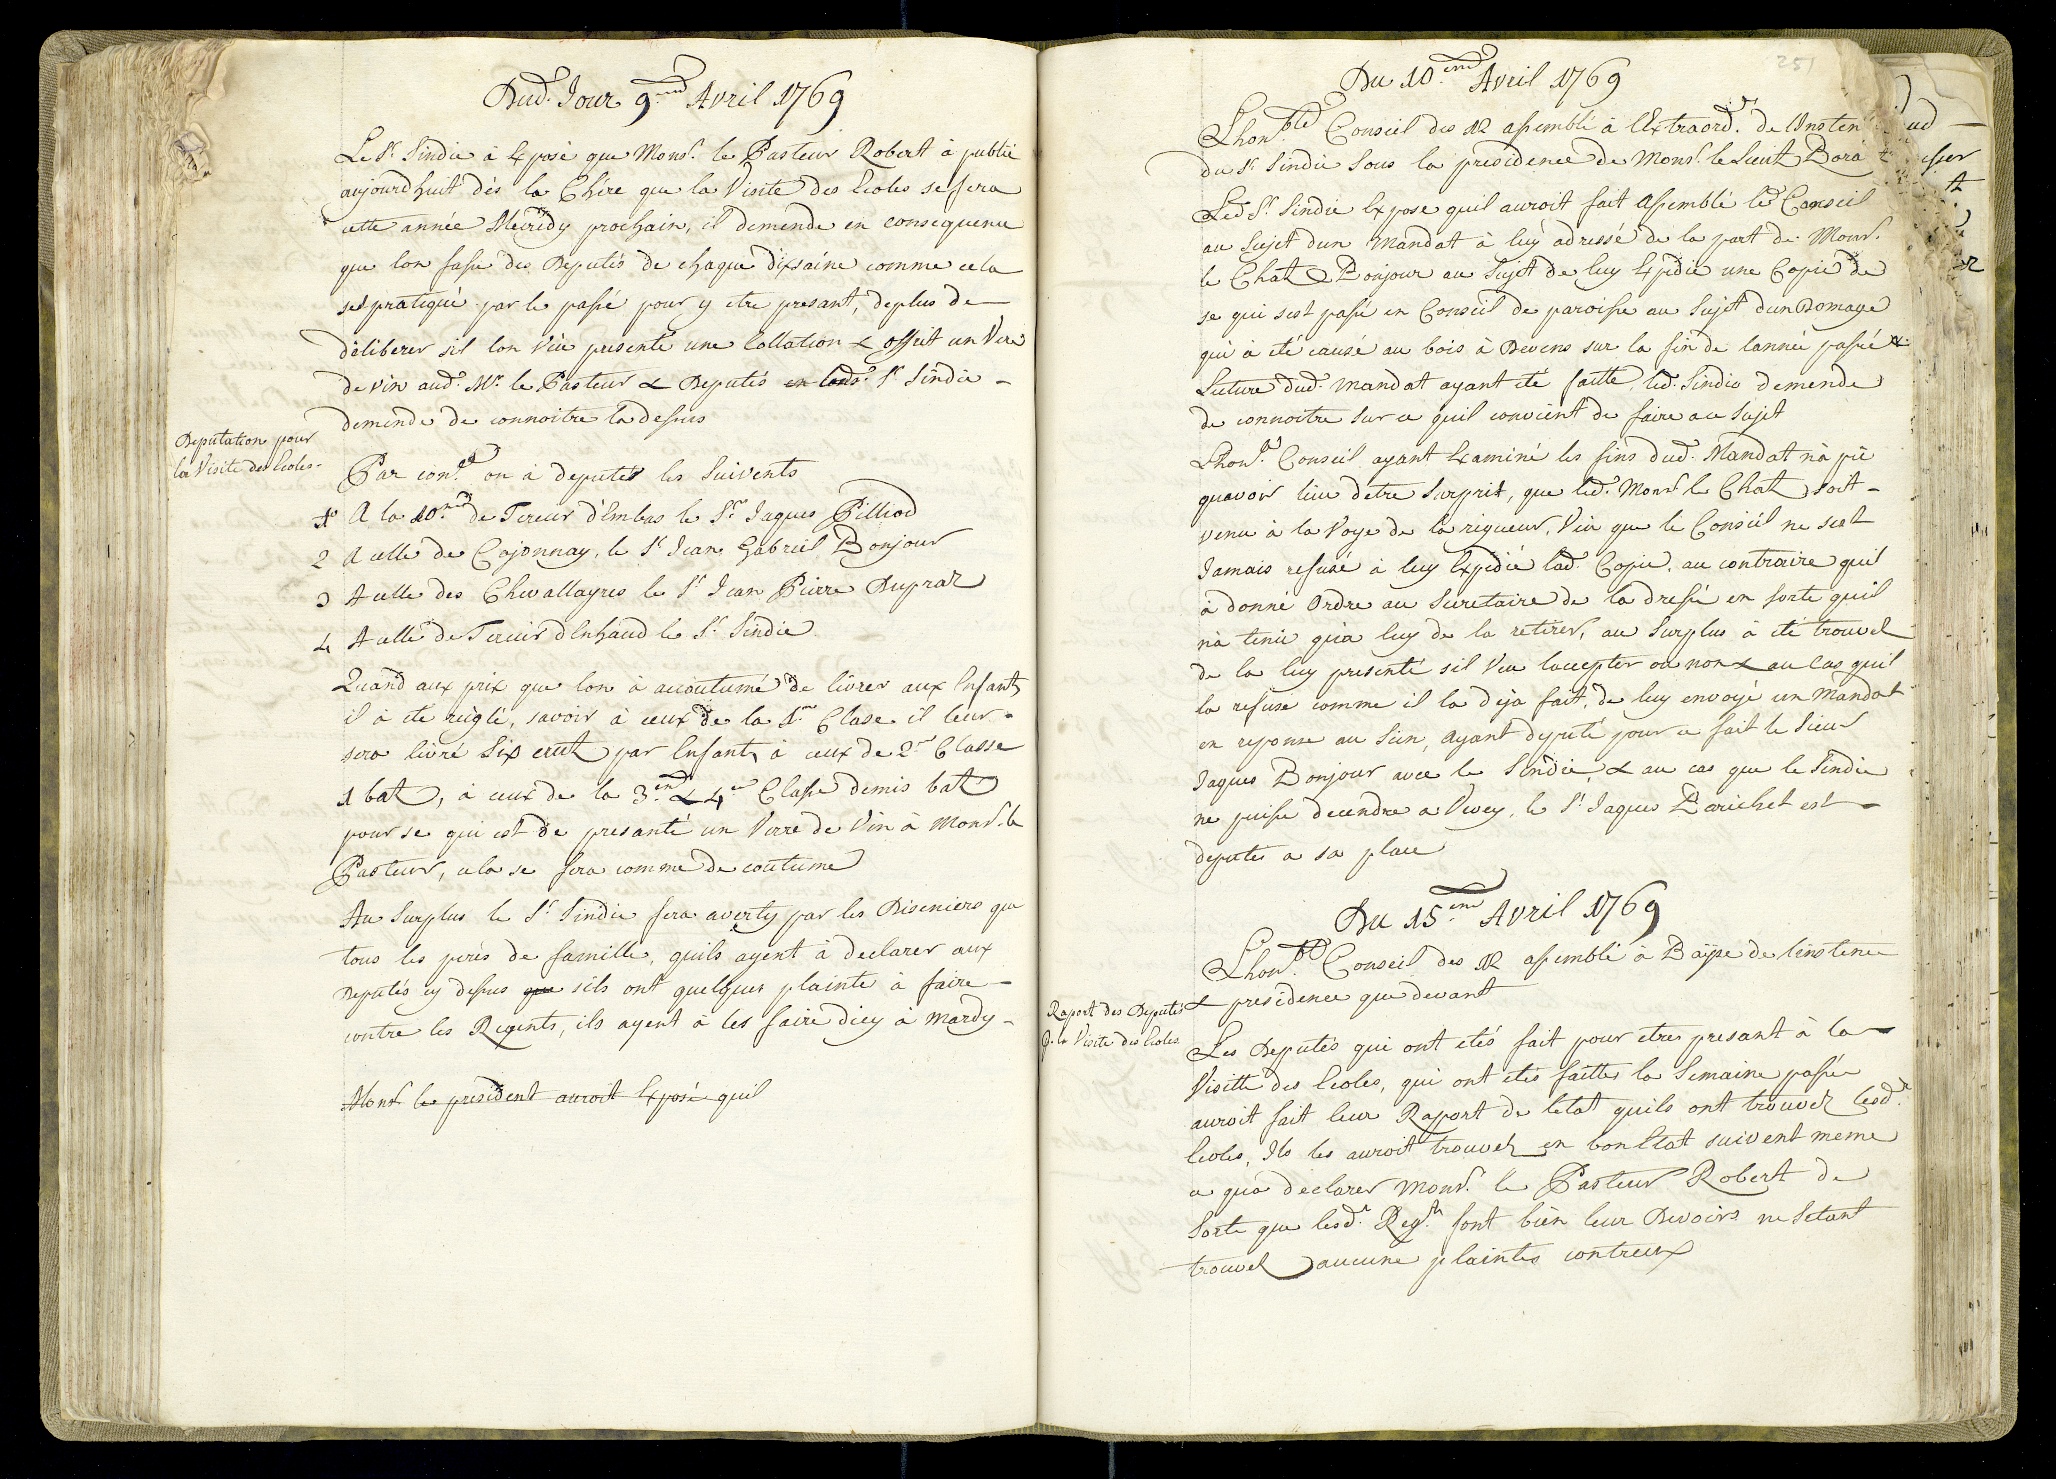 Dud. Jour 9.eme Avril 1769
Le Sr. Sindic à Exposé que Monsr. le Pasteur Robert à publié
aujourdhuit dés la Chére que la Visite des Ecoles se fera
cette année Mecrédy prochain, il demende en consequence
que lon fasse des Deputés de chaque dixsaine comme cela
sest pratiqué par le passé pour y etre presant, deplus de
déliberer sil lon Veu presenté une Collation & offrit un Vere
de vin aud. Mr. le Pasteur & Deputés Sr. Sindic
demende de connoitre la dessus
Deputation pour
la Visite des Ecoles
Par con. on à deputés les Suivents
1° A la 10.me de Tercier d'Embas le Sr. Jaques Pilliod
2 A celle de Cojonnay, le Sr. Jean Gabriel Bonjour
3 A celle des Chevallayres le Sr. Jean Pierre Dupraz
4 A celle de Tercier d'Enhaud le Sr. Sindic
Quand aux prix que lon à accoutumé de livrer aux Enfants
il à été règlé, savoir à ceux de la 1.re Classe il leur
sera livré Six crutz par Enfants à ceux de 2.e Classe
1 batz, à ceux de la 3.eme & 4.e Classe demis batz
pour se qui est de presanté un Verre de Vin à Monsr. le
Pasteur, cela se fera comme de coutume
Au Surplus le Sr. Sindic fera averty par les Diseniers que
tous les pères de famille, quils ayent à declarer aux
Deputés cy dessus que sils ont quelques plainte à faire
contre les Regents, ils ayent à les faire dicy à Mardy
Monsr. le président auroit Exposé quil
251
Du 10.eme Avril 1769
Lhon.ble Conseil des 12 assemblé à lExtraord.re de lInsten
du Sr. Sindic sous la presidence de Monsr. le Lieut
Led. Sr. Sindic Expose quil auroit fait Assemblé led. Conseil
au Sujet dun Mandat à luy adressé de la part de Monsr.
le Chat. Bonjour au Sujet de luy Expidié une Copie de
se qui sest passé en Conseil de paroisse au Sujet dun Domage
qui à été causé au bois à Devens sur la fin de lannée passée
Lecture dud. Mandat ayant été faitte, led. Sindic demende
de connoitre sur ce quil convient de faire au Sujet
Lhon.ble Conseil ayant Examiné les fins dud. Mandat nà pû
quavoir lieu detre Surprit, que led. Monsr. le Chat. soit
venu à la Voye de la rigueur, Veu que le Conseil ne sest
Jamais refusé à luy Expidié lad. Copie, au contraire quil
à donné Ordre au Secretaire de la dressé en sorte quil
nà tenu quà luy de la retirer, au Surplus à été trouvel
de la luy presenté sil Veu laccepter ou non & au Cas quil
la refuse comme il la déja fait, de luy envoyé un Mandat
en reponse au Sien, Ayant deputé pour ce fait le Sieur
Jaques Bonjour avec le Sindic, & au cas que le Sindic
ne puisse decendre a Vevey, le Sr. Jaques Parichet est
deputés a sa place
Du 15.eme Avril 1769
Lhon.ble Conseil des 12 assemblé à Bayse de linstence
& presidence que devant
Raport des Deputés
p. la Visite des Ecoles
Les Deputés qui ont étés fait pour etres presant à la
Visitte des Ecoles, qui ont étés faittes la Semaine passée
auroit fait leur Raport de letat quils ont trouvez lesd.
Ecoles, Ils les auroit trouvez en bon Etat suivent meme
a quà declarer Monsr. le Pasteur Robert de
Sorte que lesd. Reg.ts font bien leur Devoirs ne setant
trouvel aucune plaintes contreux